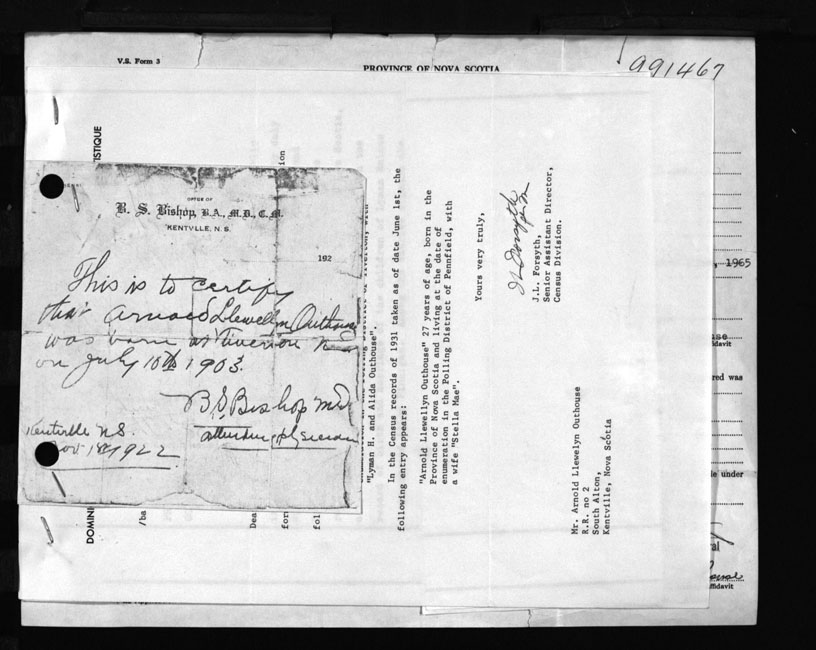 V.S. Form 3
PROVINCE OF NOVA SCOTIA
991467
TISTIQUE
ion
OFFICE OF
B. S. Bishop, B.A., M.D., C.M.
KENTVILLE, N. S.
192
This is to certify
that Arnold Llewellyn Outhouse
was born at Tiverton N.S.
on July 10th 1903.
B.S. Bishop MD
attending physician
Kentville NS
Nov 1st 1922
DOMINI
/ba
Dea
for
fol
"Lyman H. and Alida Outhouse".
In the Census records of 1931 taken as of date June 1st, the
following entry appears:
"Arnold Llewellyn Outhouse" 27 years of age, born in the
Province of Nova Scotia and living at the date of
enumeration in the Polling District of Pennfield, with
a wife "Stella Mae".
Yours very truly,
J.L. Forsyth,
Senior Assistant Director,
Census Division.
Mr. Arnold Llewelyn Outhouse
R.R. no 2
South Alton,
Kentville, Nova Scotia
, 1965
use
fidavit
red was
le under
al
ffidavit